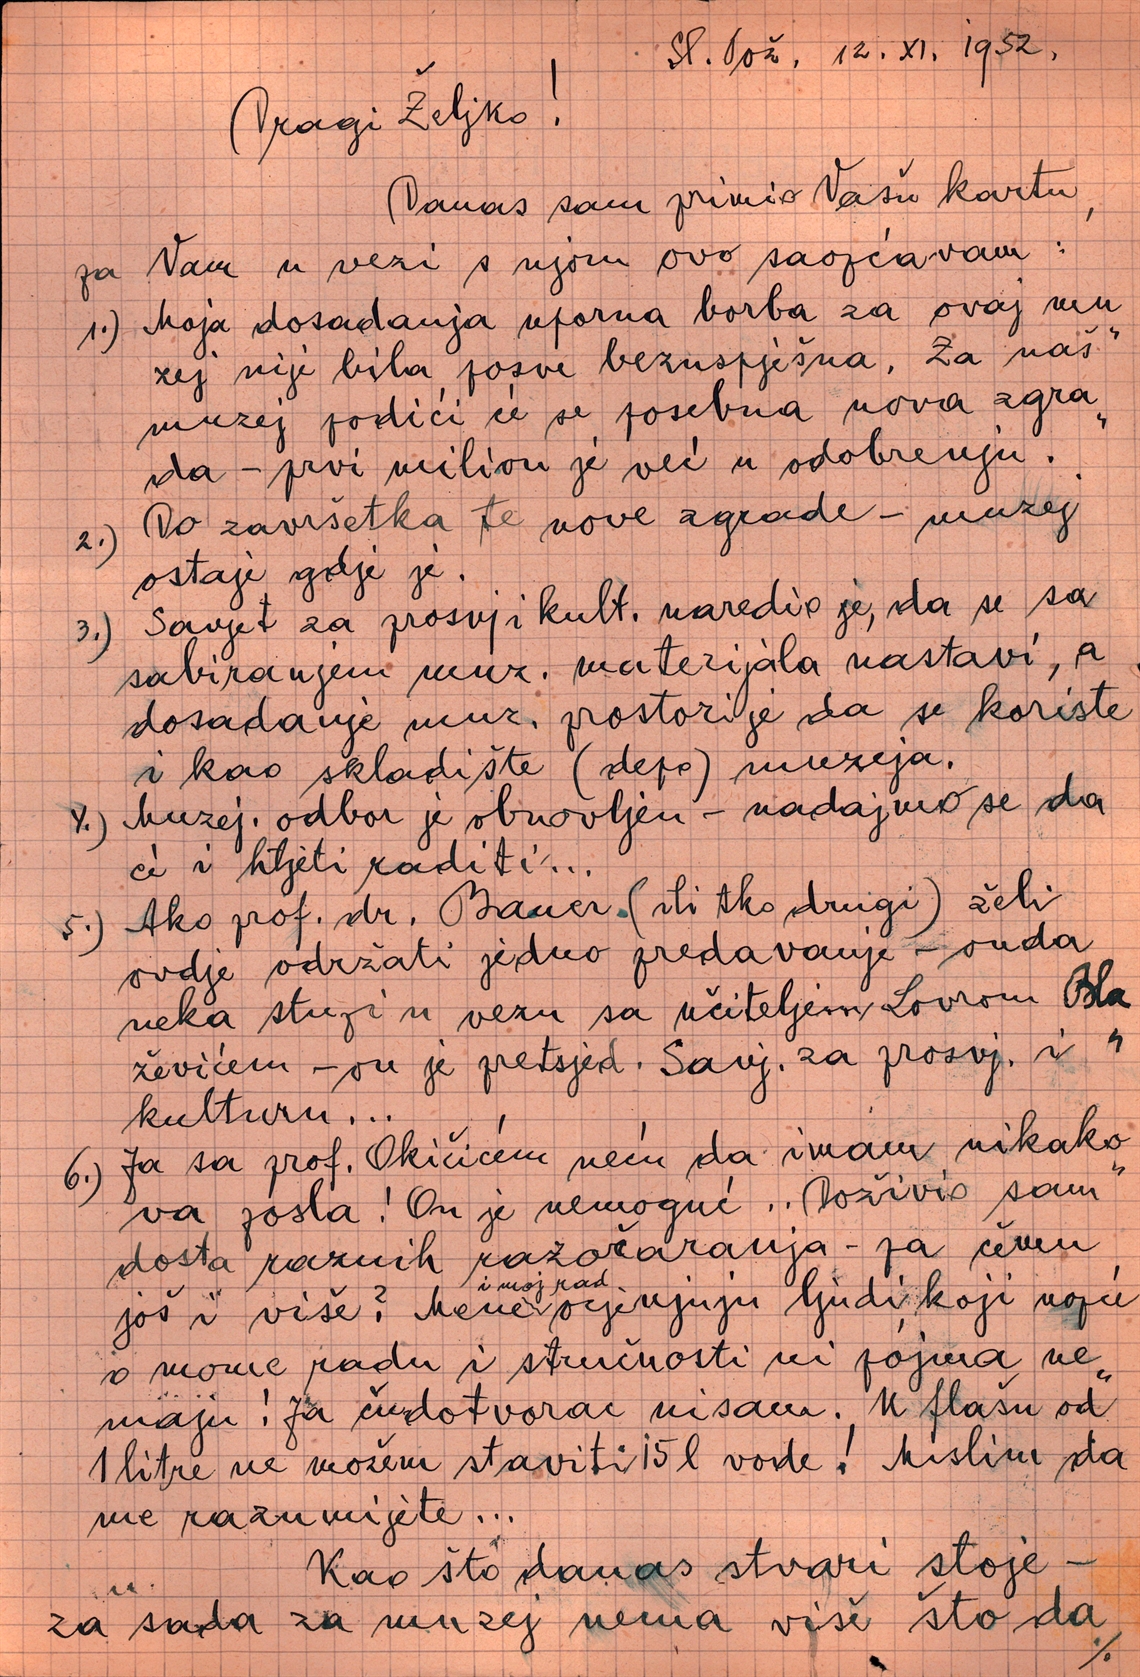 Sl. Pož. 12. XI. 1952.
Dragi Željko!
Danas sam primio Vašu kartu,
pa Vam u vezi s njom ovo saopćavam:
1.) Moja dosadanja uporna borba za ovaj mu„
zej nije bila posve bezuspješna. Za naš
muzej podići će se posebna nova zgra„
da – prvi milion je već u odobrenju.
2.) Do završetka te nove zgrade – muzej
ostaje gdje je.
3.) Savjet za prosvj i kult. naredio je, da se sa
sabiranjem muz. materijala nastavi, a
dosadanje muz. prostorije da se koriste
i kao skladište (depo) muzeja.
4.) Muzej. odbor je obnovljen – nadajmo se da
će i htjeti raditi...
5.) Ako prof. dr. Bauer (ili tko drugi) želi
ovdje održati jedno predavanje – onda
neka stupi u vezu sa učiteljem Lovrom Bla„
ževićem – on je pretsjed. Savj. za prosvj. i
kulturu...
6.) Ja sa prof. Okičićem neću da imam nikako„
va posla! On je nemoguć... Doživio sam
dosta raznih razočaranja – pa čemu
još i više? Mene i moj rad ocjenjuju ljudi, koji uopće
o mome radu i stručnosti ni pojma ne„
maju! Ja čudotvorac nisam. U flašu od
1 litre ne možem staviti 15 l vode! Mislim da
me razumijete...
Kao što danas stvari stoje –
za sada za muzej nema više što da
%